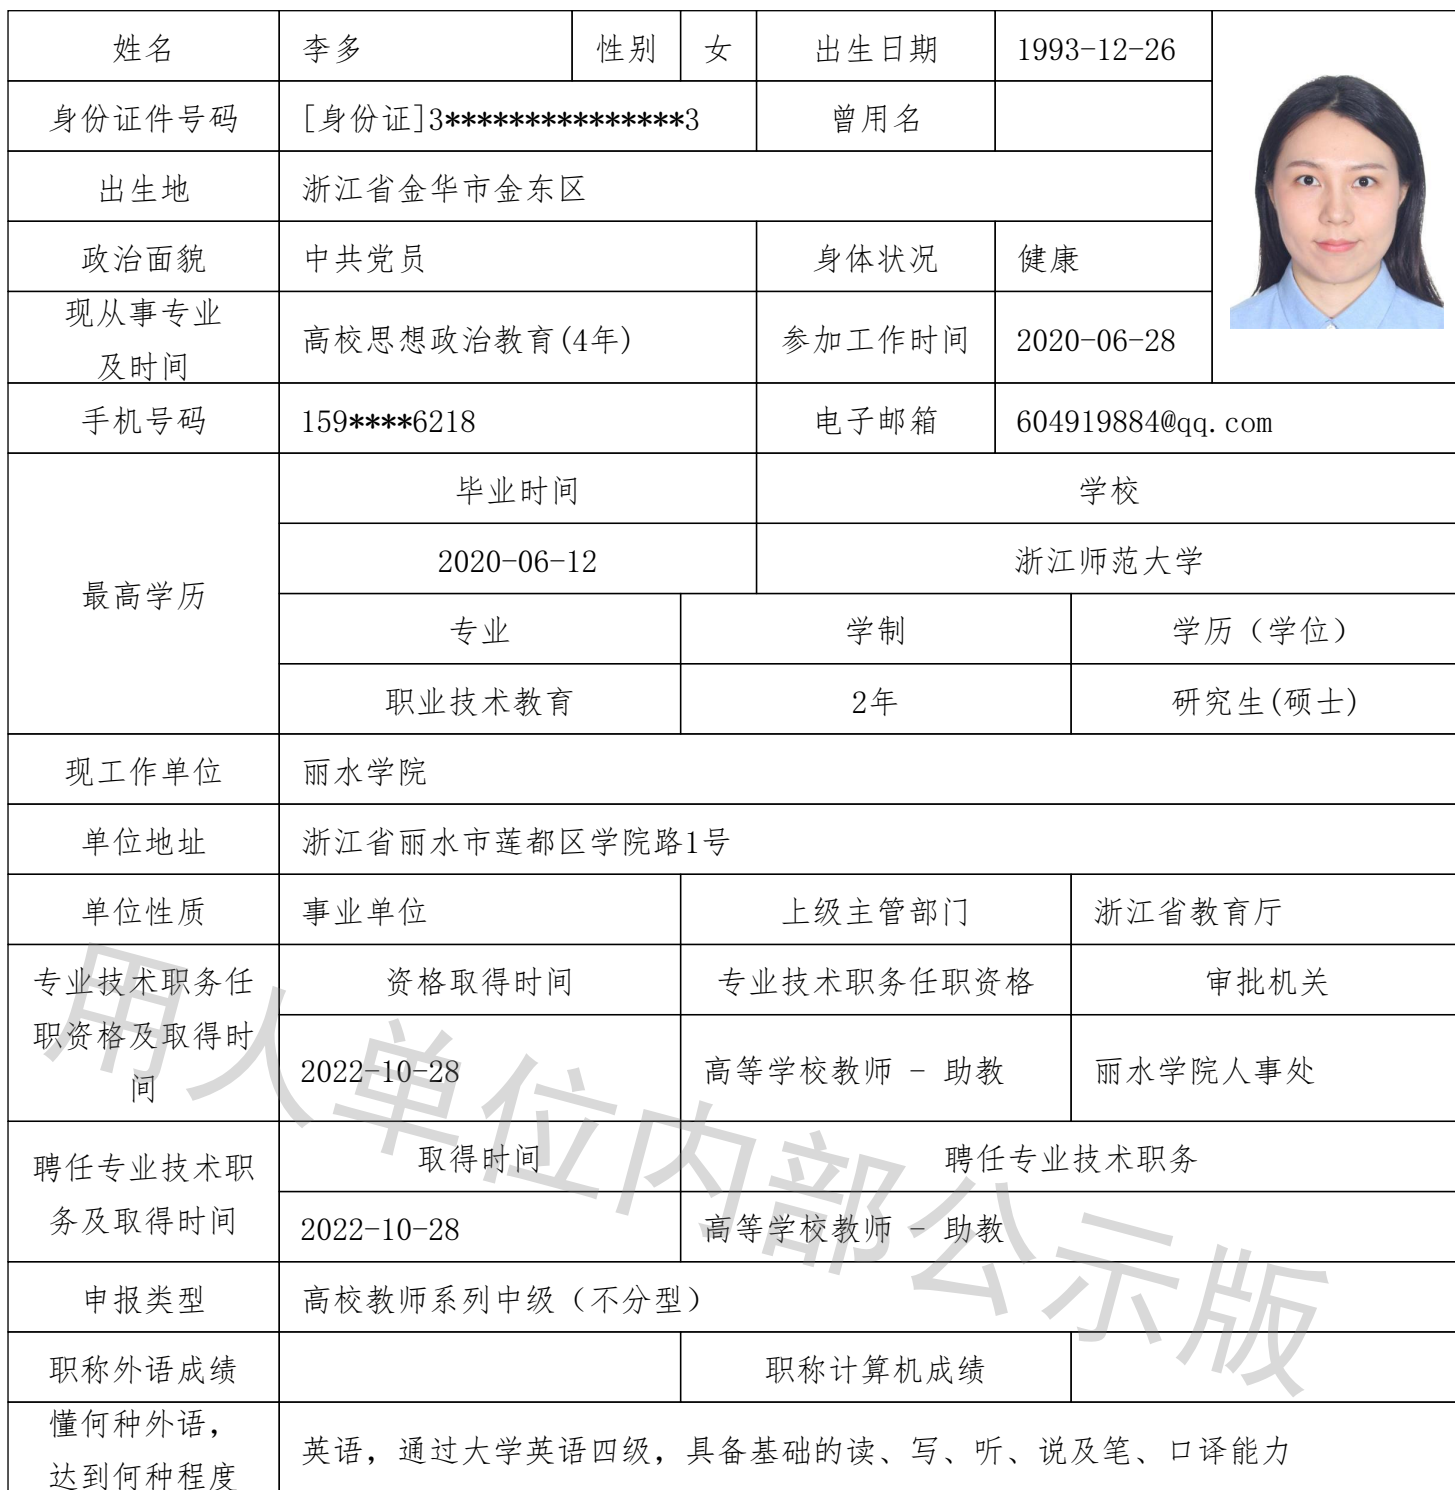 姓名 李多 性别 女 出生日期 1993-12-26
身份证件号码 [身份证]3***************3 曾用名
出生地 浙江省金华市金东区
政治面貌 中共党员 身体状况 健康
现从事专业
及时间 高校思想政治教育(4年) 参加工作时间 2020-06-28
手机号码 159****6218 电子邮箱 604919884@qq.com
最高学历
毕业时间 学校
2020-06-12 浙江师范大学
专业 学制 学历（学位）
职业技术教育 2年 研究生(硕士)
现工作单位 丽水学院
单位地址 浙江省丽水市莲都区学院路1号
单位性质 事业单位 上级主管部门 浙江省教育厅
专业技术职务任
职资格及取得时
间
资格取得时间 专业技术职务任职资格 审批机关
2022-10-28 高等学校教师 - 助教 丽水学院人事处
聘任专业技术职
务及取得时间
取得时间 聘任专业技术职务
2022-10-28 高等学校教师 - 助教
申报类型 高校教师系列中级（不分型）
职称外语成绩 职称计算机成绩
懂何种外语，
达到何种程度 英语，通过大学英语四级，具备基础的读、写、听、说及笔、口译能力
用人单位内部公示版